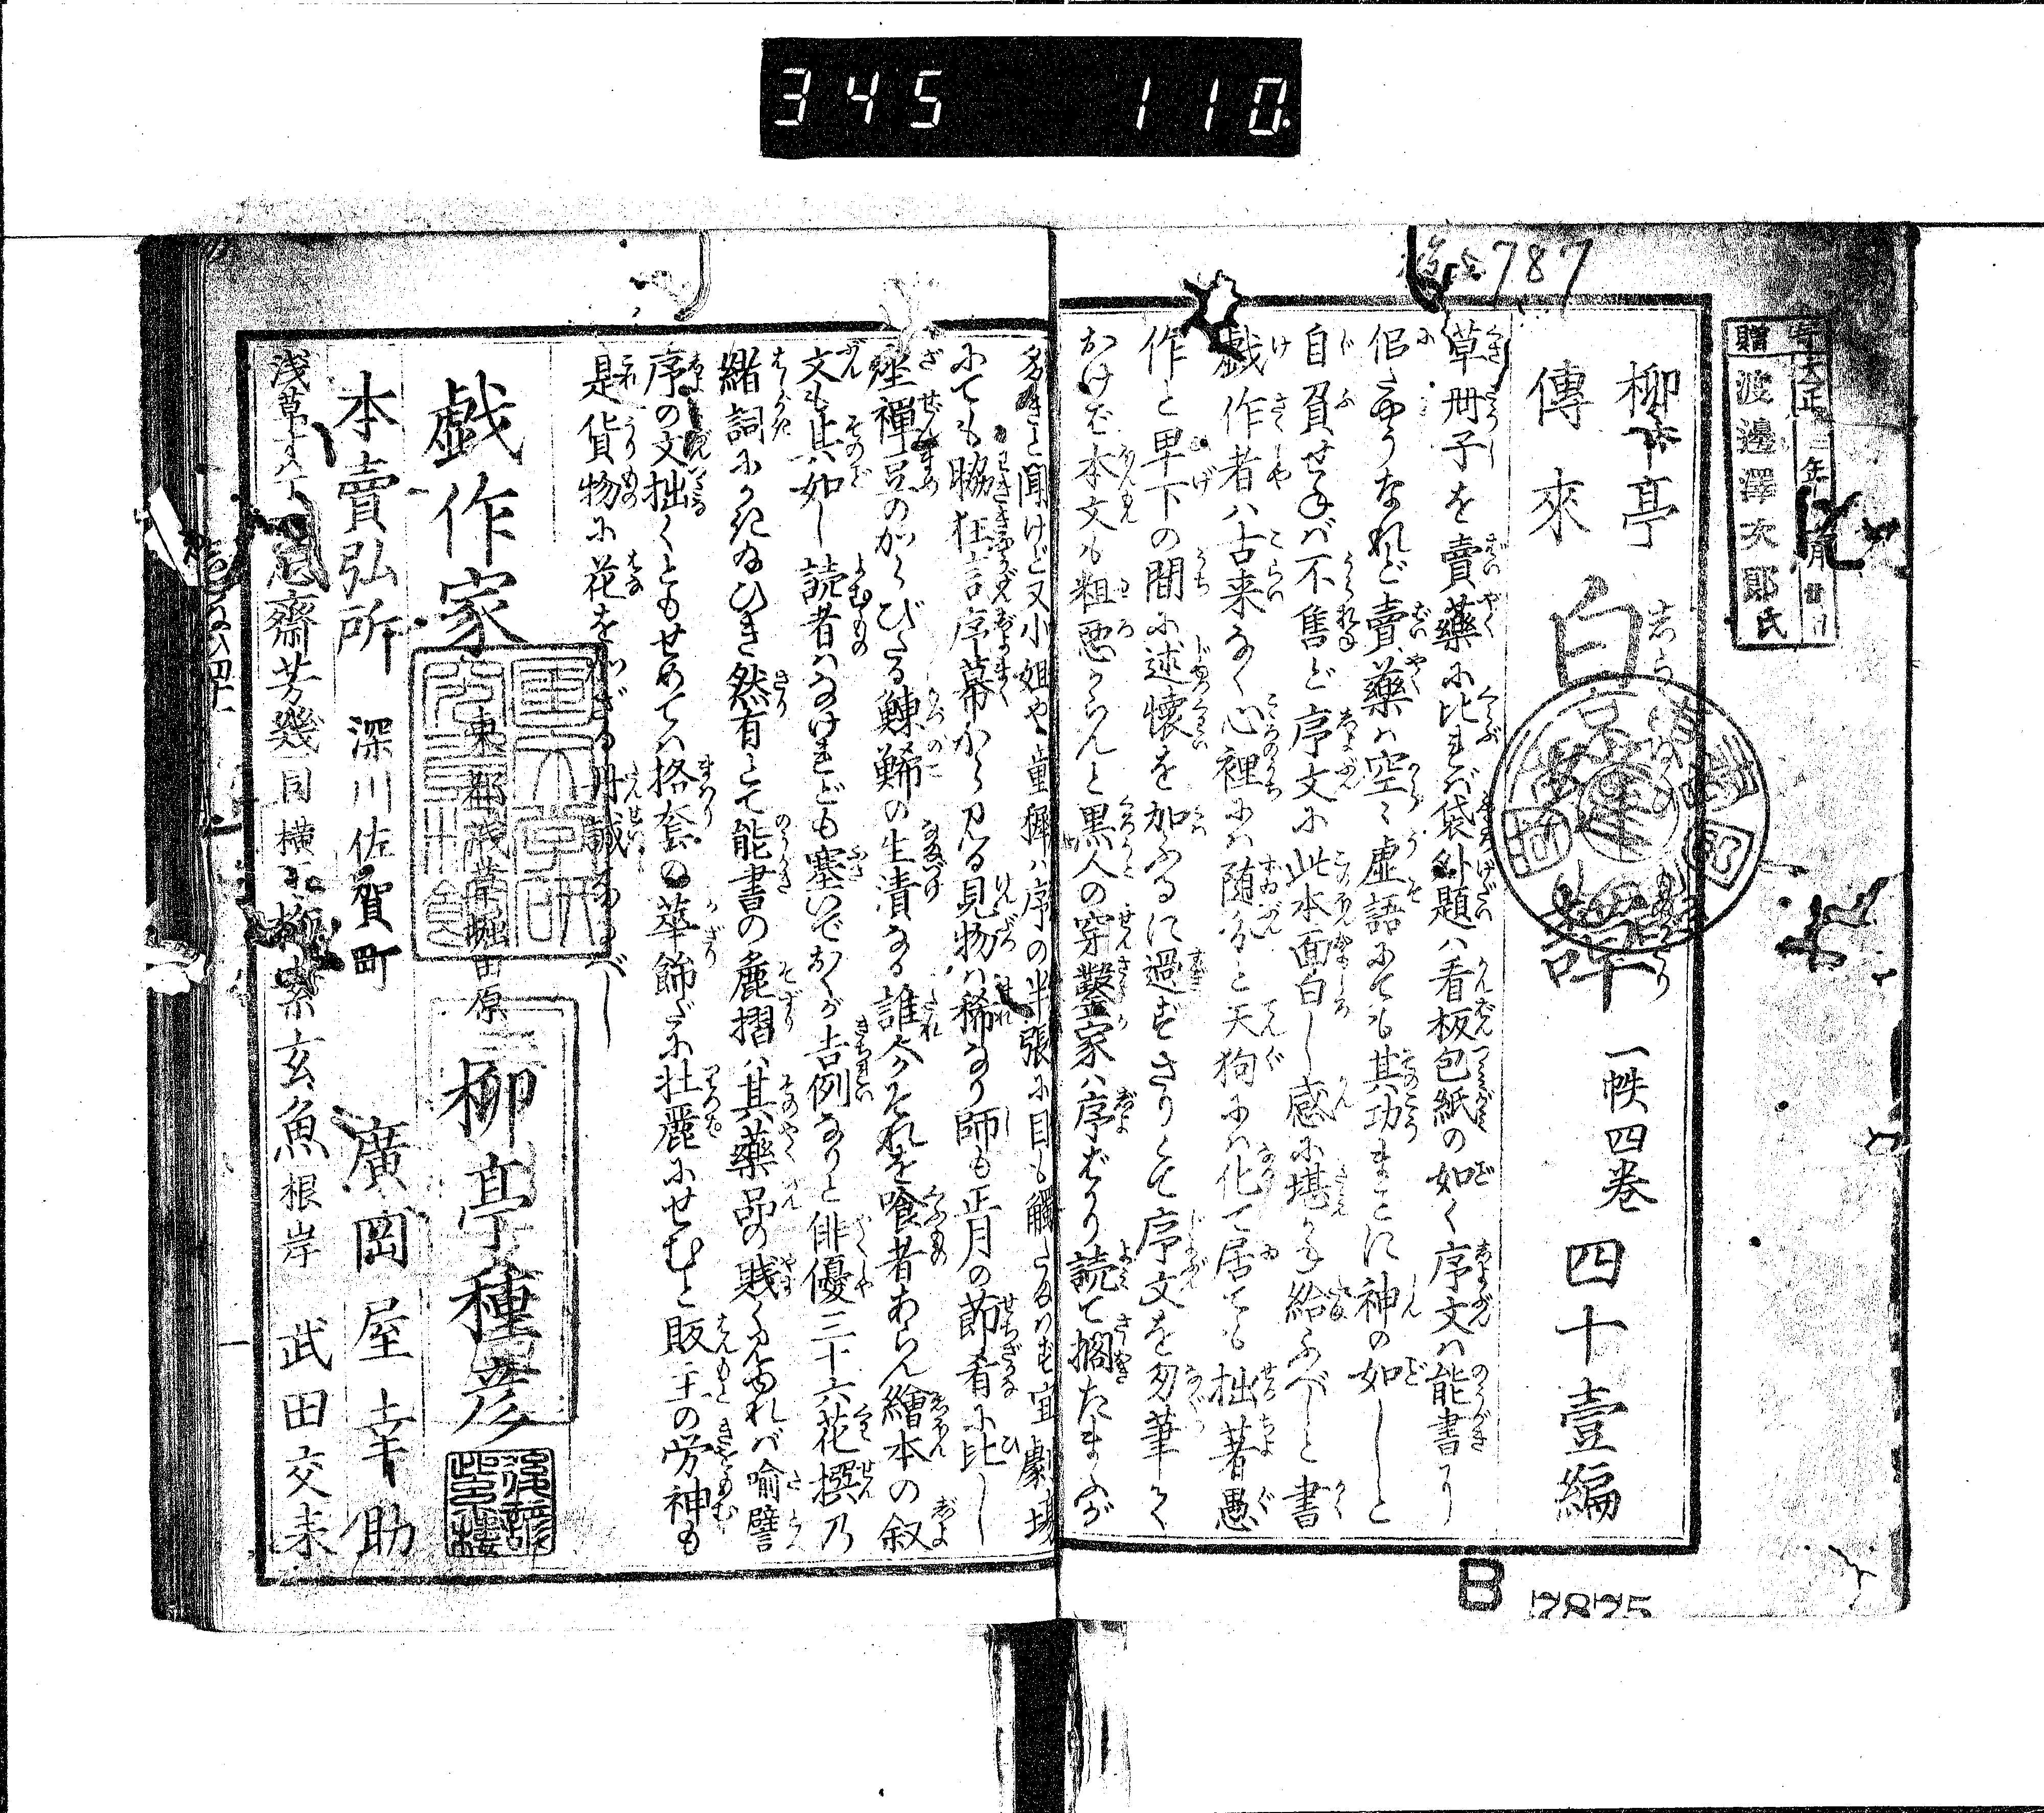 345 110.
787
寄 大正三年 月廿 日
贈 渡邊澤次郎氏
柳下亭
傳來
白縫譚
しらぬひものがたり
一帙四巻
四十壹編
草冊子を賣藥に比すれバ袋外題ハ看板包紙の如く序文ハ能書に
似たやうなれど賣藥ハ空々虚語にても其功まことに神の如しと
自負せねバ不售ど序文に此本面白し感に堪へ給ふべしと書
戯作者ハ古来なく心裡にハ随分と天狗にハ化て居ても拙著愚
作と卑下の間に述懐を加ふるに過ずさりとて序文を匆筆て
おけバ本文も粗悪からんと黒人の穿鑿家ハ序ばかり読て擱たまふが
多きと聞けど又小姐や童孺ハ序の半張に目も觸ざるハむ宜劇場
にても脇狂言序幕から見る見物ハ稀なり師も正月の節肴に比し
座禅豆のからびたる鰊鯑の生漬なる誰今それを喰者あらん繪本の叙
文も其如し読者ハなけれども塞いでおくが吉例なりと俳優三十六花撰乃
緒詞にかきぬひき然有とて能書の麁摺ハ其藥品の賎く見ゆれバ喩譬
序の文拙くともせめてハ格套の華飾だに壮麗にせむと販主の労神も
是貨物に花をかざる丹誠なるべし
戯作家
東都浅草堀田原
柳亭種彦
本賣弘所 深川佐賀町 廣岡屋幸助
浅草 齋芳幾 同横 柳 素玄魚 根岸 武田交来
四十一
B
7875